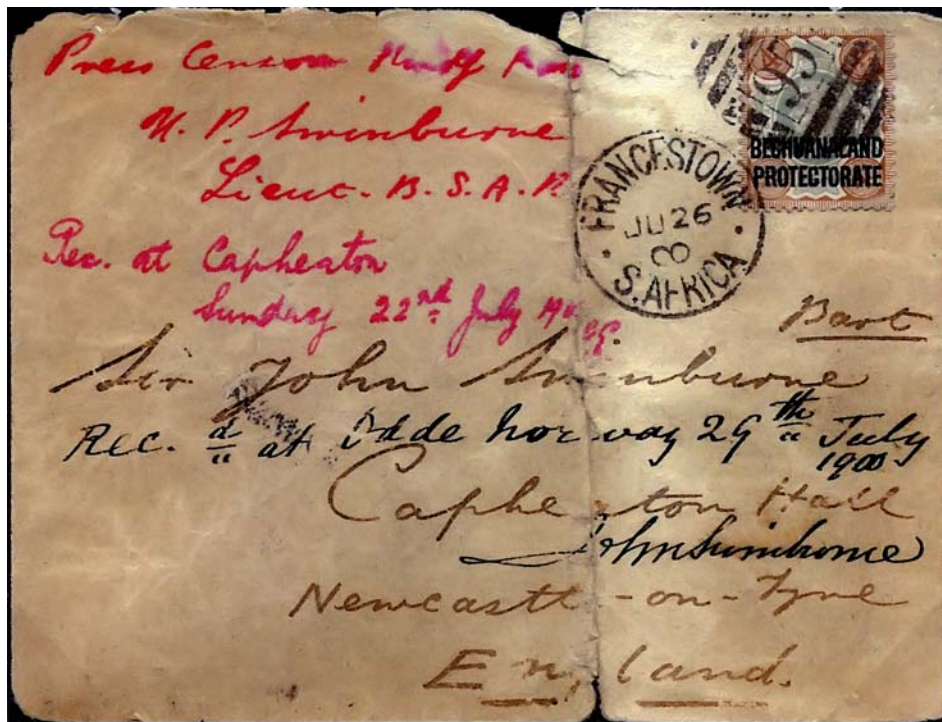 Press Censor
U. P. Swinburne
Lieut - B. S. A. P.
Rec. at Capheaton
Sunday 22nd July
BECHUANALAND
PROTECTORATE
FRANCESTOWN
JU 26
S. AFRICA
Bart
Sir John Swinburne
Rec.d at Odde Norway 29th July
1900
Capheaton Hall
John Swinburne
Newcastle-on-Tyne
England.